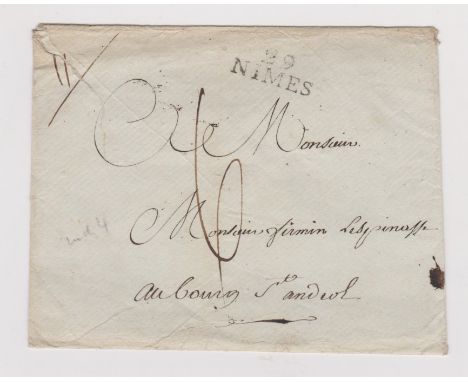 29
NIMES
A Monsieur
6
Monsieur firmin Lespinasse
au bourg St andeol